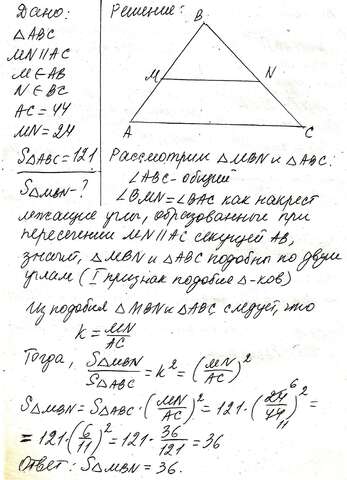 Дано:
△ABC
MN || AC
M ∈ AB
N ∈ BC
AC = 44
MN = 24
S△ABC = 121
S△MBN - ?
Решение:
B
M
N
A
C
Рассмотрим △MBN и △ABC:
∠ABC - общий
∠BMN = ∠BAC как накрест
лежащие углы, образованные при
пересечении MN || AC секущей AB,
значит, △MBN и △ABC подобны по двум
углам (I признак подобия △-ков)
Из подобия △MBN и △ABC следует, что
k = MN/AC
Тогда, S△MBN/S△ABC = k² = (MN/AC)²
S△MBN = S△ABC · (MN/AC)² = 121 · (24 6/44 11)² =
= 121 · (6/11)² = 121 · 36/121 = 36
Ответ: S△MBN = 36.